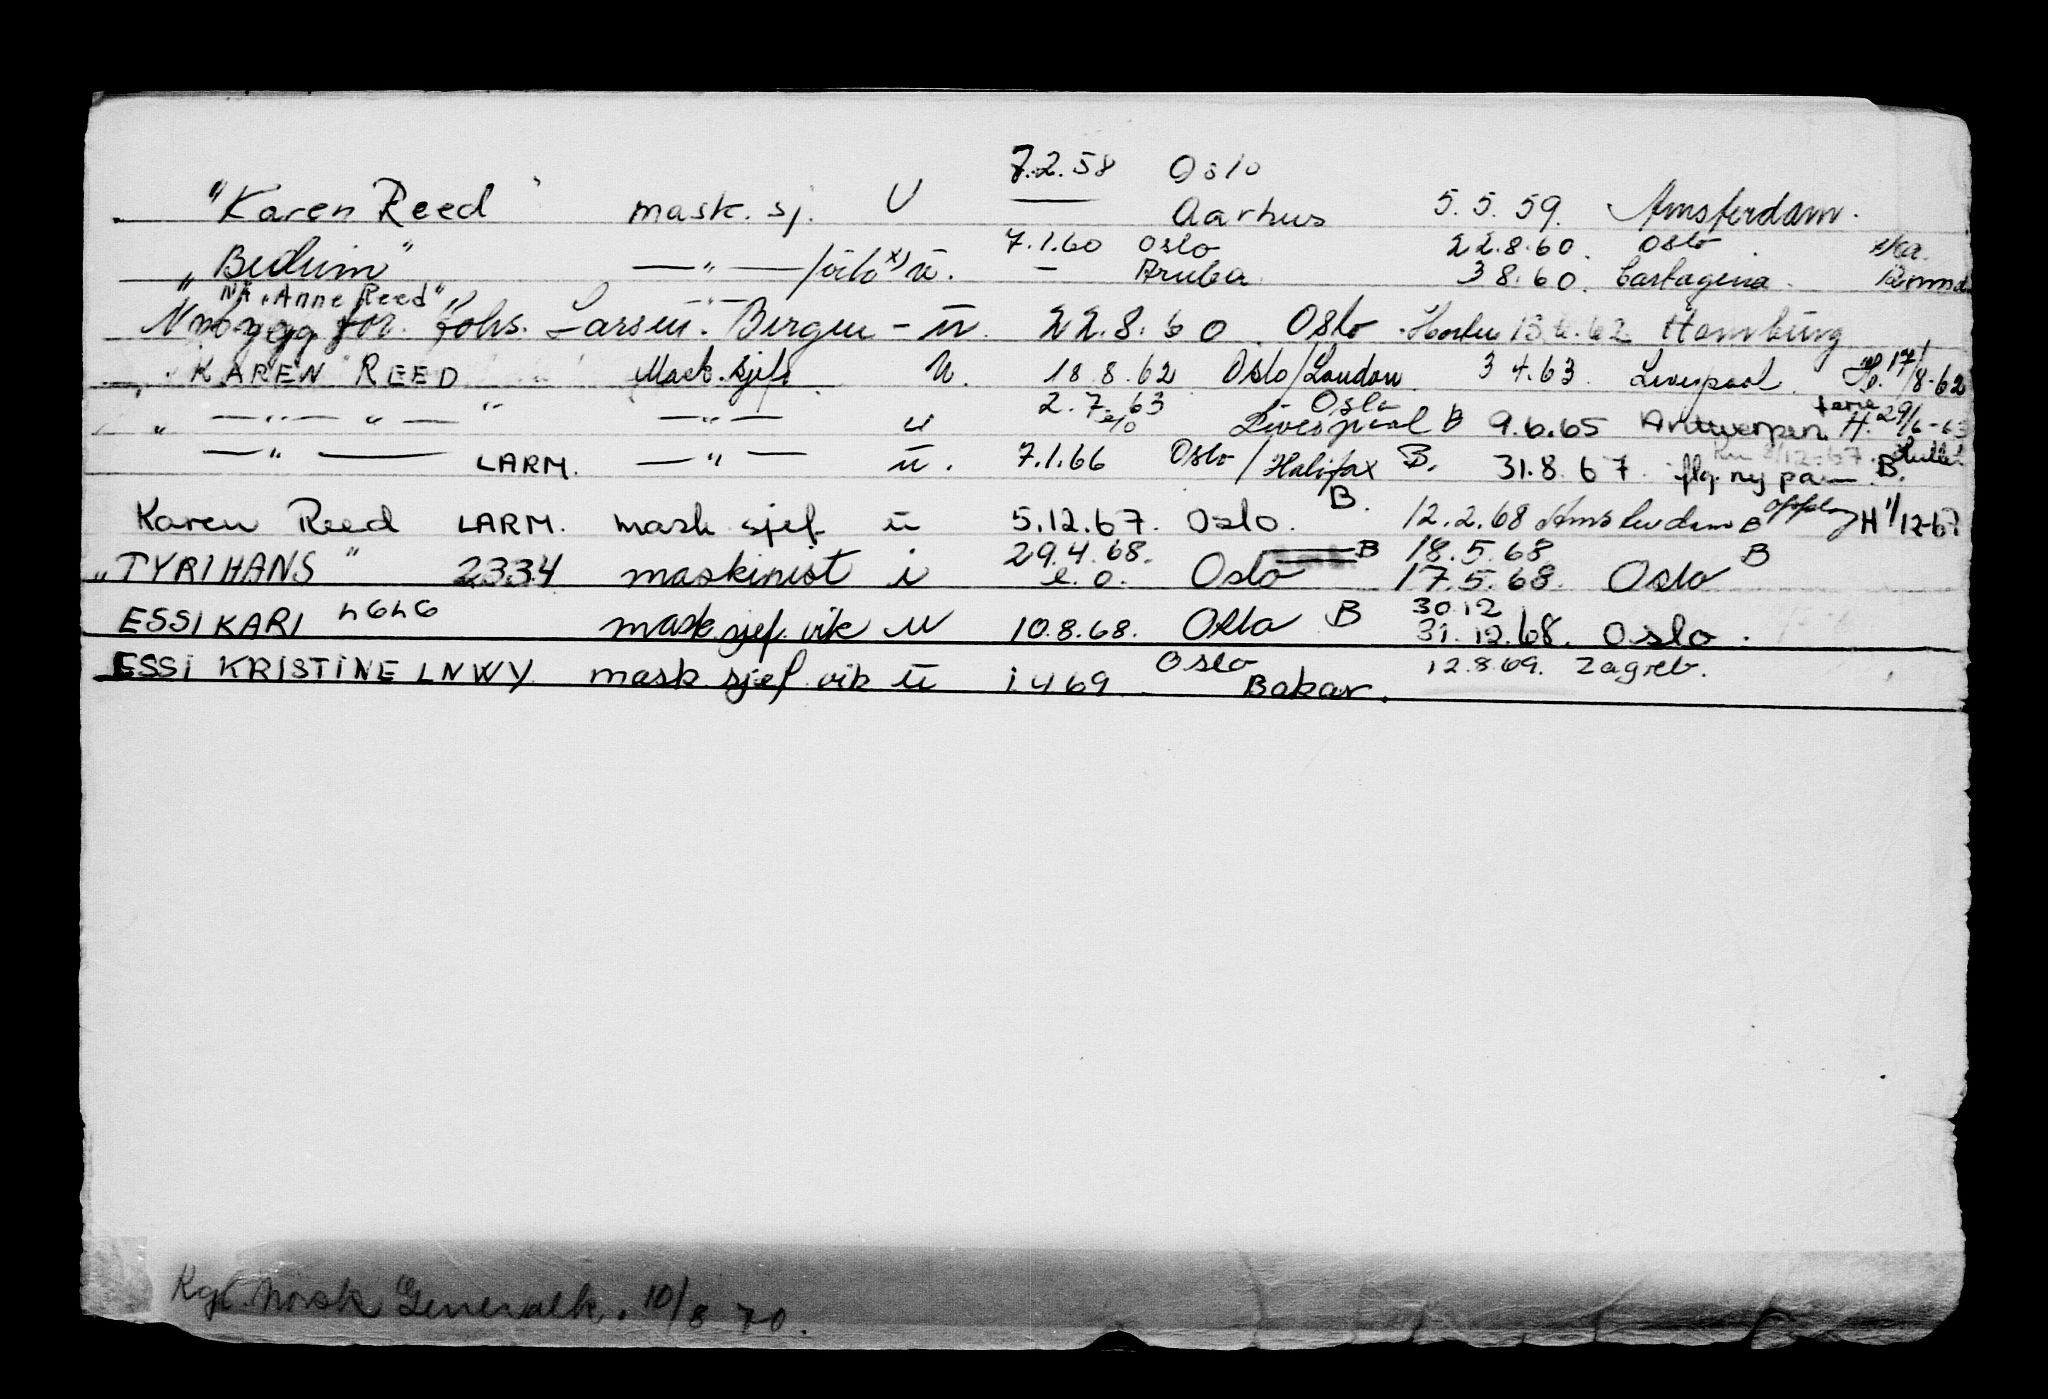 7.2.58 Oslo
"Karen Reed" mask. sj. U — Aarhus 5.5.59. Amsterdam.
7.1.60 Oslo 22.8.60. Oslo
" — " — / ü. — Aruba 3 8.60. Cartagena.
"Anne Reed"
Nybygg for. Johs. Larsen. Bergen - ü. 22.8.60 Oslo Hamburg
" KAREN REED Mask. sjef. U. 18.8.62 Oslo/London 3 4.63. Liverpool. 17/8-62
2.7.63 Oslo ferie
" — " — " — " — " — ü Liverpool B 9.6.65 Antwerpen H. 29/6-63
— " — LARM. — " — ü. 7.1.66 Oslo / Halifax B. 31.8.67. flg. ny B.
Karen Reed LARM. mask sjef ü 5.12.67. Oslo. B. 12.2.68 Amsterdam B H 1/12-67
29.4.68. B 18.5.68 B
"TYRIHANS" 2334 maskinist i e.o. Oslo 17.5.68. Oslo
30.12
ESSI KARI LGLG mask sjef. vik U 10.8.68. Oslo B 31.12.68. Oslo.
Oslo 12.8.69. Zagreb.
ESSI KRISTINE LNWY mask sjef vik ü 1 4 69 Bakar.
Kgl. Norsk Generalk. 10/8 70.